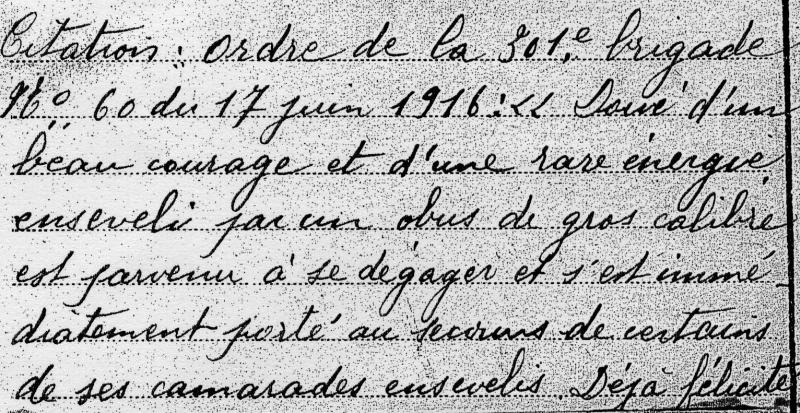 Citation : Ordre de la 301.e brigade
No 60 du 17 juin 1916 : << Doué d'un
beau courage et d'une rare énergie
enseveli par un obus de gros calibre
est parvenu à se dégager et s'est immé-
diatement porté au secours de certains
de ses camarades ensevelis. Déjà félicité